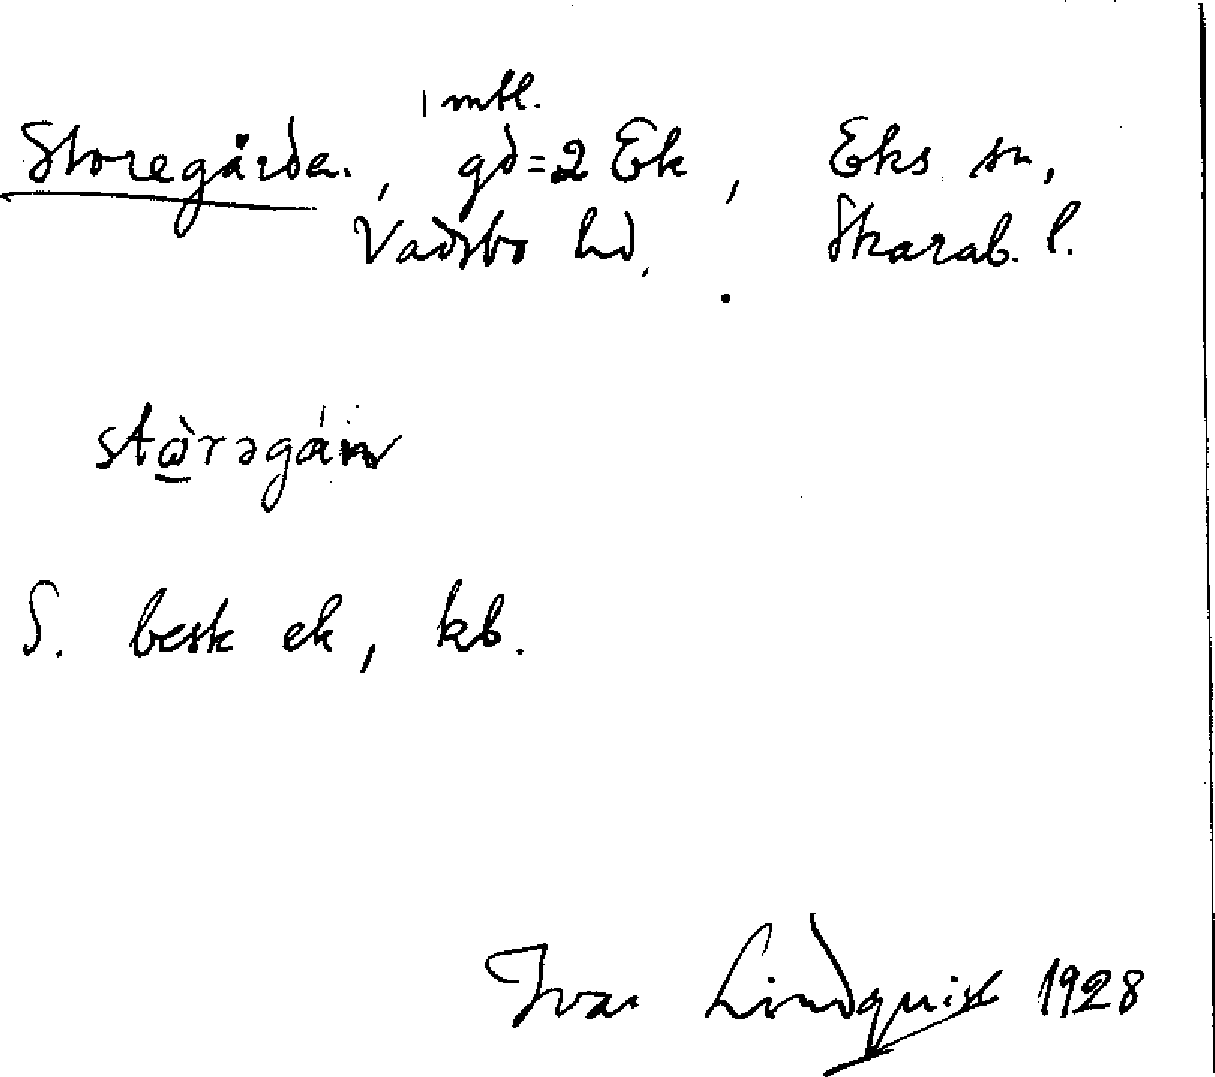 1 mtl.
Storegården, gd = 2 Ek, Eks sn,
Vadsbo hd. Skarab. l.
S. besk ek, kb.
Ivar Lindquist 1928